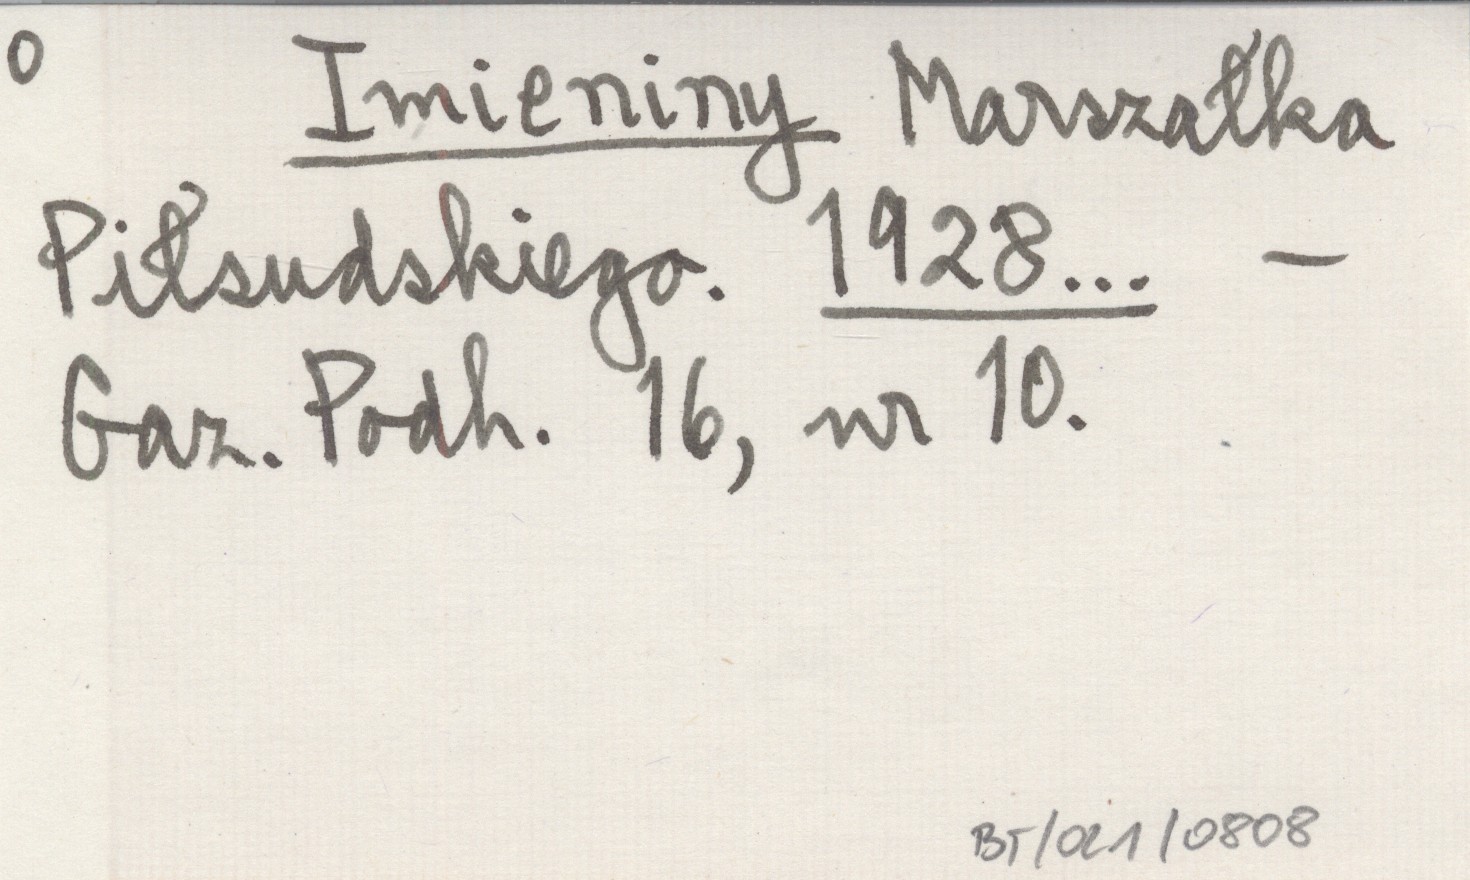 o Imieniny Marszałka
Piłsudskiego. 1928... —
Gaz. Podh. 16, nr 10.
BT/021/0808